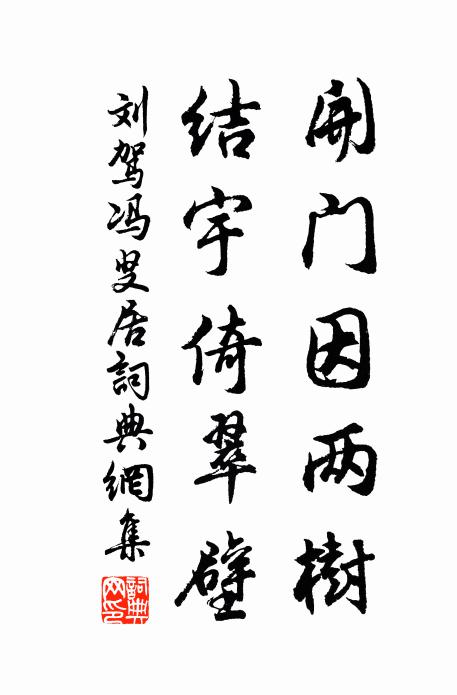 開门因两樹
结宇倚翠壁
刘驾冯叟居詞典網集
詞典網印